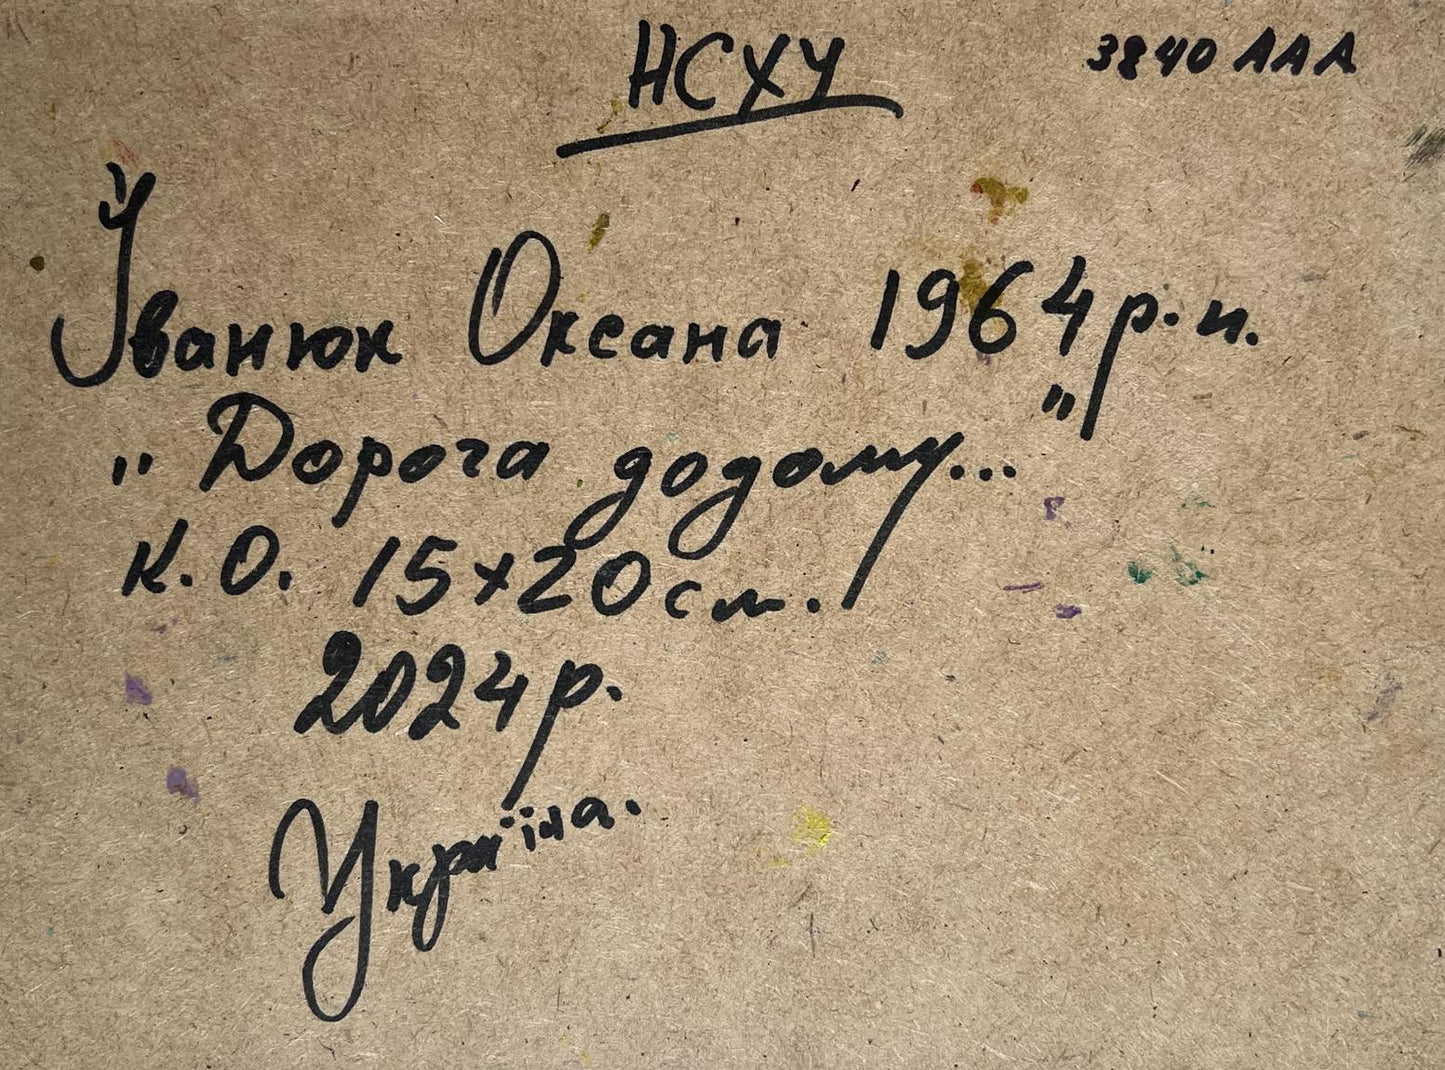 НСХУ
3840 ААА
Іванюк Оксана 1964 р.н.
„Дорога додому..."
К.О. 15x20 см.
2024 р.
Україна.